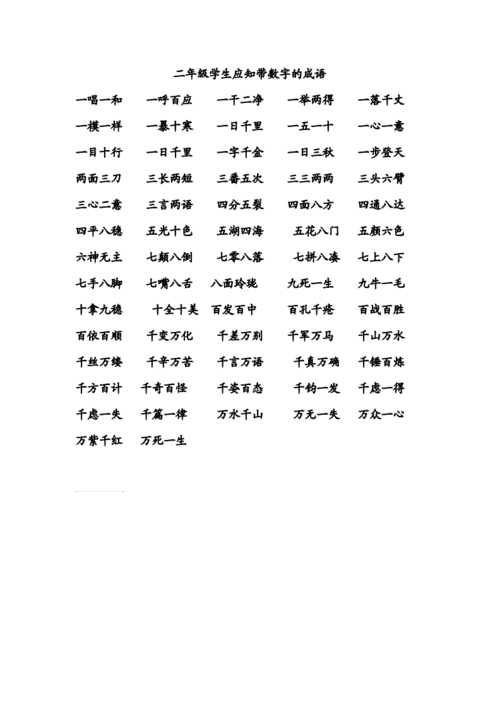 二年级学生应知带数字的成语
一唱一和 一呼百应 一干二净 一举两得 一落千丈
一模一样 一暴十寒 一日千里 一五一十 一心一意
一目十行 一日千里 一字千金 一日三秋 一步登天
两面三刀 三长两短 三番五次 三三两两 三头六臂
三心二意 三言两语 四分五裂 四面八方 四通八达
四平八稳 五光十色 五湖四海 五花八门 五颜六色
六神无主 七颠八倒 七零八落 七拼八凑 七上八下
七手八脚 七嘴八舌 八面玲珑 九死一生 九牛一毛
十拿九稳 十全十美 百发百中 百孔千疮 百战百胜
百依百顺 千变万化 千差万别 千军万马 千山万水
千丝万缕 千辛万苦 千言万语 千真万确 千锤百炼
千方百计 千奇百怪 千姿百态 千钧一发 千虑一得
千虑一失 千篇一律 万水千山 万无一失 万众一心
万紫千红 万死一生